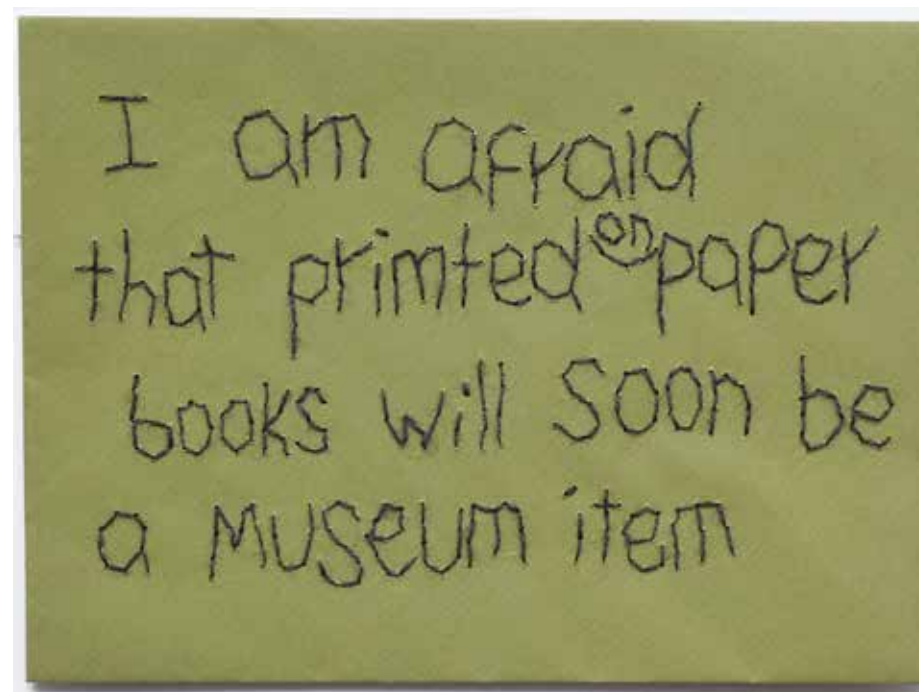 I am afraid
that primted on paper
books will soon be
a museum item